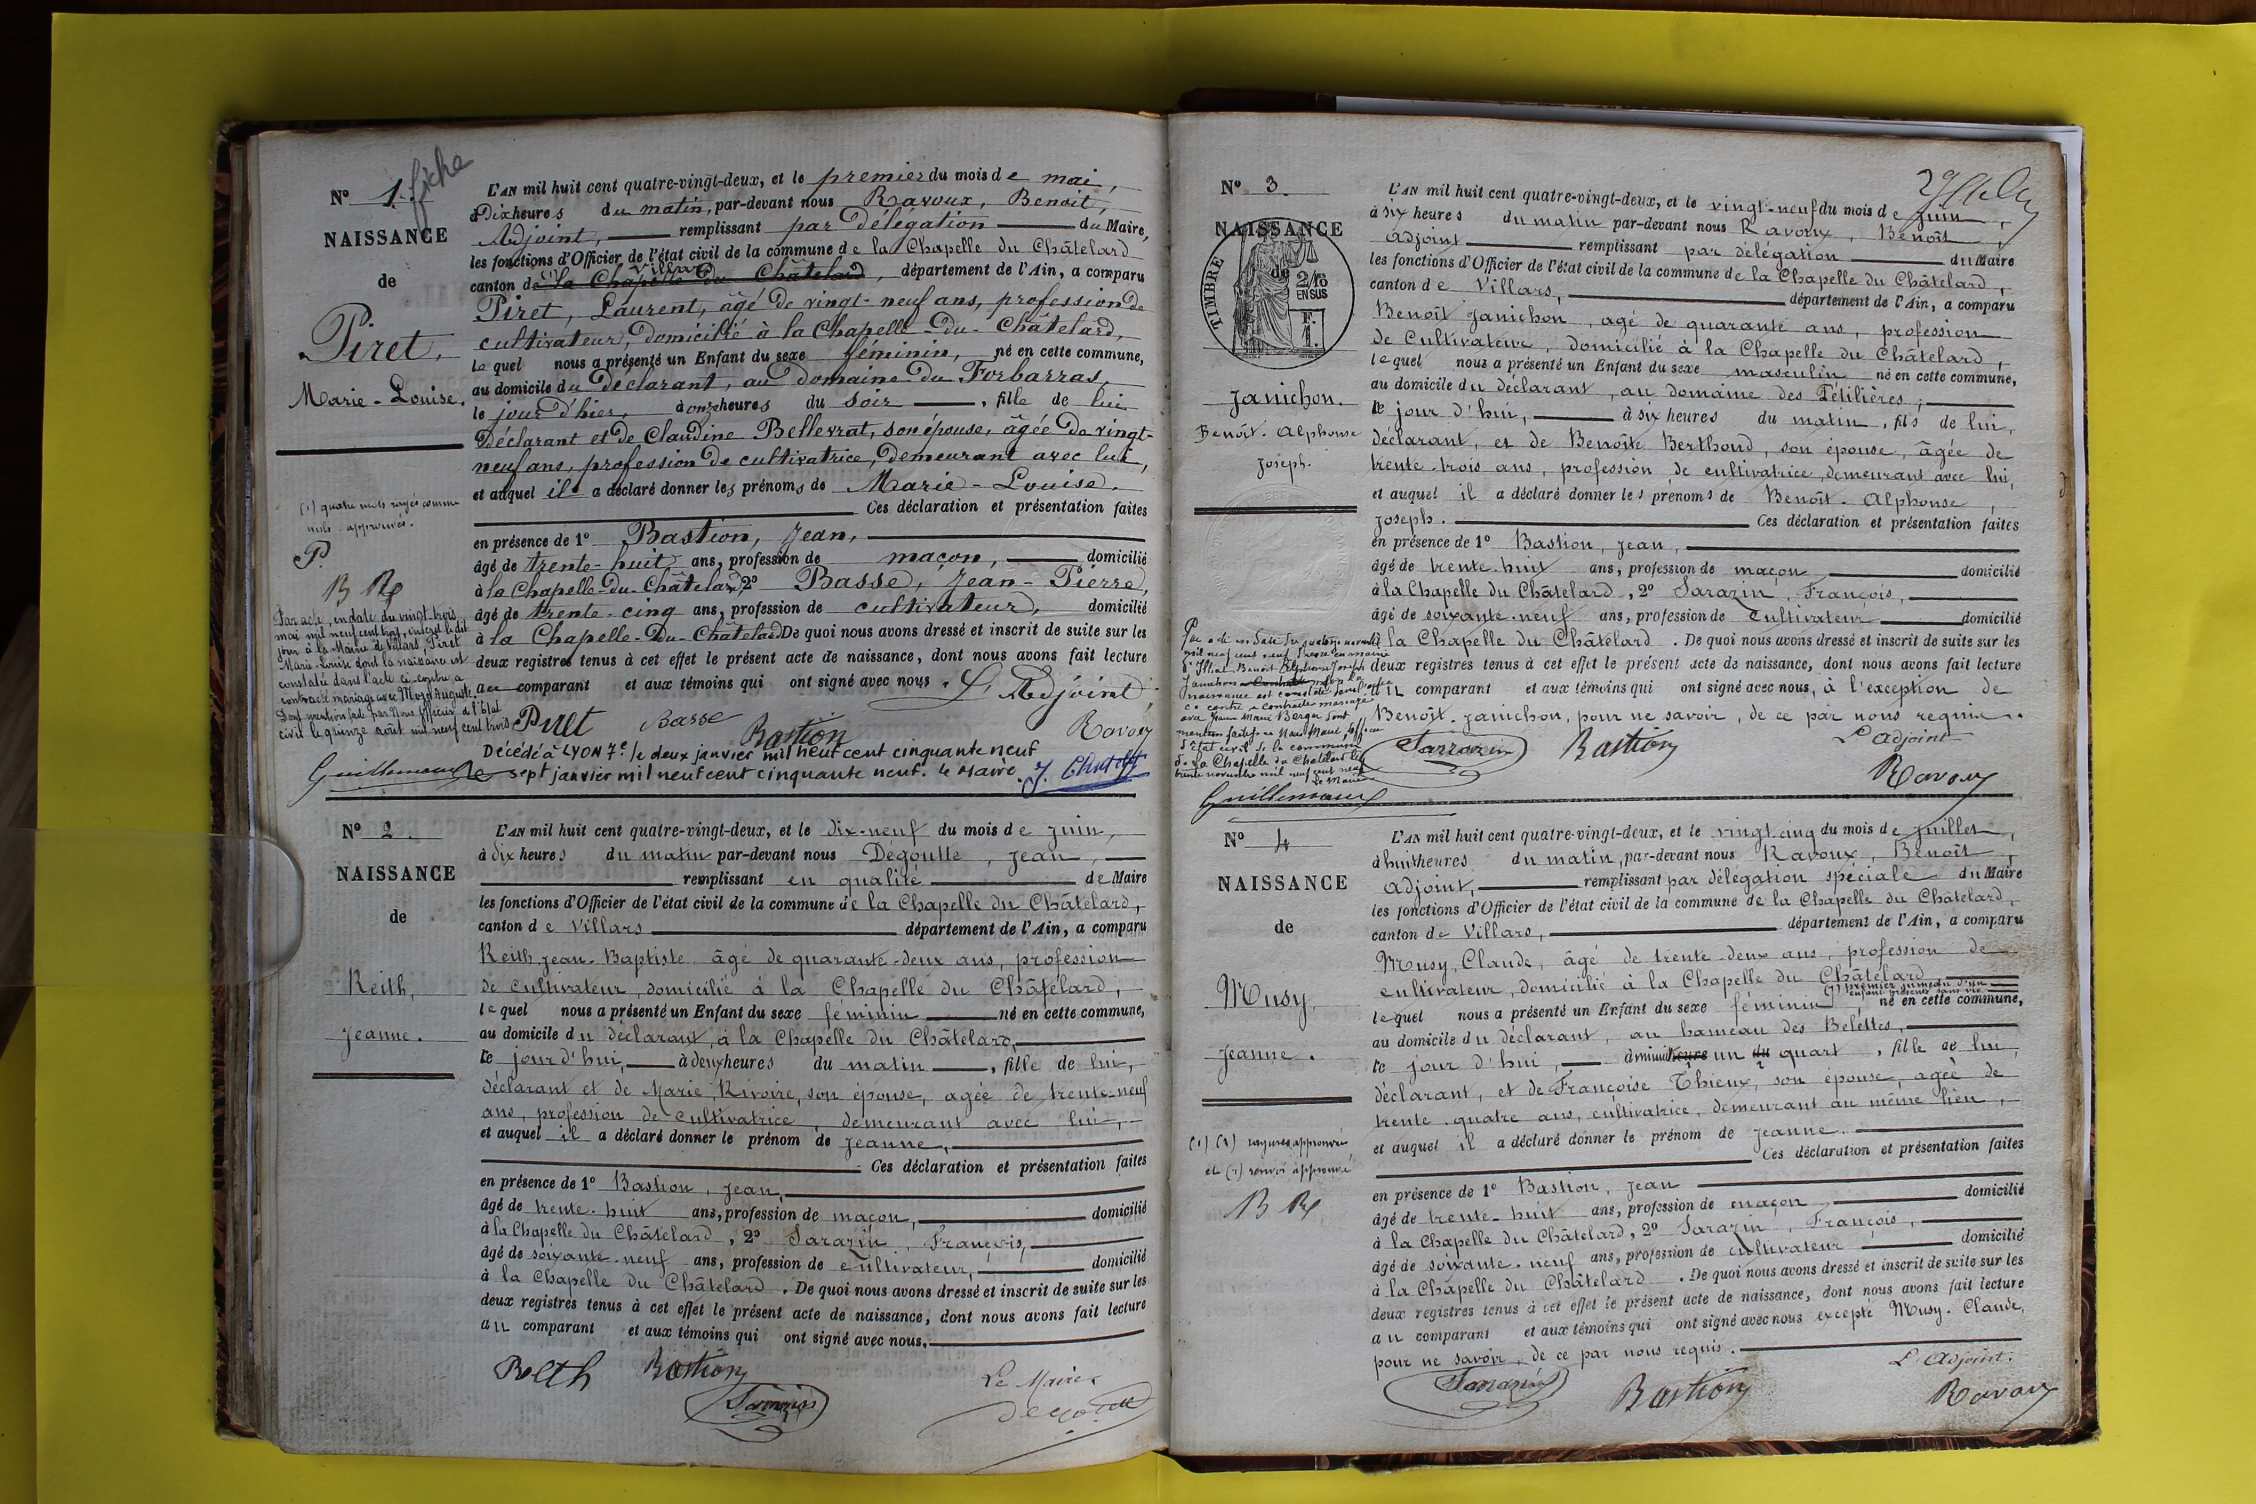 Nº 1. fiche
NAISSANCE
de
Piret,
Marie-Louise,
(1) quatre mots rayés comme
nuls approuvés.
P.
B Rx
Par acte, en date du vingt-trois
mai mil neuf cent trois, inscrit le dit
jour à la Mairie de Villars, Piret
Marie-Louise dont la naissance est
constatée dans l'acte ci-contre a
contracté mariage avec Auguste
Dont mention faite par Nous Officier de l'Etat
civil le quinze août mil neuf cent trois
Guillemaud
L'AN mil huit cent quatre-vingt-deux, et le premier du mois de mai,
à dix heures du matin, par-devant nous Ravoux, Benoît,
Adjoint, remplissant par délégation du Maire,
les fonctions d'Officier de l'état civil de la commune de la Chapelle du Châtelard
canton de la Chapelle du Châtelard (1) Villars, département de l'Ain, a comparu
Piret, Laurent, âgé de vingt-neuf ans, profession de
cultivateur, domicilié à la Chapelle-du-Châtelard,
lequel nous a présenté un Enfant du sexe féminin, né en cette commune,
au domicile du Déclarant, au domaine du Forbarras,
le jour d'hier, à onze heures du soir, fille de lui
Déclarant et de Claudine Bellevrat, son épouse, âgée de vingt-
neuf ans, profession de cultivatrice, demeurant avec lui,
et auquel il a déclaré donner les prénoms de Marie-Louise.
Ces déclaration et présentation faites
en présence de 1º Bastion, Jean,
âgé de trente-huit ans, profession de maçon, domicilié
à la Chapelle-du-Châtelard, 2º Basse, Jean-Pierre,
âgé de trente-cinq ans, profession de cultivateur, domicilié
à la Chapelle-du-Châtelard De quoi nous avons dressé et inscrit de suite sur les
deux registres tenus à cet effet le présent acte de naissance, dont nous avons fait lecture
au comparant et aux témoins qui ont signé avec nous. L'Adjoint
Piret Basse Bastion Ravoux
Décédé à LYON 7e le deux janvier mil neuf cent cinquante neuf
Le sept janvier mil neuf cent cinquante neuf. Le Maire.
Nº 2.
NAISSANCE
de
Reith,
Jeanne.
L'AN mil huit cent quatre-vingt-deux, et le dix-neuf du mois de juin,
à dix heures du matin par-devant nous Dégoutte, Jean,
remplissant en qualité de Maire
les fonctions d'Officier de l'état civil de la commune de la Chapelle du Châtelard,
canton de Villars département de l'Ain, a comparu
Reith Jean-Baptiste âgé de quarante-deux ans, profession
de cultivateur, domicilié à la Chapelle du Châtelard,
lequel nous a présenté un Enfant du sexe féminin né en cette commune,
au domicile du déclarant, à la Chapelle du Châtelard,
le jour d'hui, à deux heures du matin, fille de lui,
déclarant et de Marie Rivoire, son épouse, âgée de trente-neuf
ans, profession de cultivatrice, demeurant avec lui,
et auquel il a déclaré donner le prénom de Jeanne,
Ces déclaration et présentation faites
en présence de 1º Bastion, Jean,
âgé de trente-huit ans, profession de maçon, domicilié
à la Chapelle du Châtelard, 2º Sarazin, François,
âgé de soixante-neuf ans, profession de cultivateur, domicilié
à la Chapelle du Châtelard. De quoi nous avons dressé et inscrit de suite sur les
deux registres tenus à cet effet le présent acte de naissance, dont nous avons fait lecture
au comparant et aux témoins qui ont signé avec nous.
Reith Bastion Le Maire
Sarrazin Degoutte
Nº 3.
NAISSANCE
de
TIMBRE
2/10
EN SUS
F.
1.
Janichon.
Benoît. Alphonse
Joseph.
Par acte en date du quatorze novembre
mil neuf cent neuf
Benoît Alphonse Joseph
Janichon dont la
naissance est constatée dans l'acte
ci-contre a contracté mariage
avec Marie Berger dont
mention faite par Nous Maire, Officier
d'état civil de la commune
de La Chapelle du Châtelard le
trente novembre mil neuf cent neuf
Le Maire
Guillemaud
L'AN mil huit cent quatre-vingt-deux, et le vingt-neuf du mois de juin,
à six heures du matin par-devant nous Ravoux, Benoît,
adjoint remplissant par délégation du Maire
les fonctions d'Officier de l'état civil de la commune de la Chapelle du Châtelard,
canton de Villars, département de l'Ain, a comparu
Benoît Janichon, agé de quarante ans, profession
de Cultivateur, domicilié à la Chapelle du Châtelard,
lequel nous a présenté un Enfant du sexe masculin né en cette commune,
au domicile du déclarant, au domaine des Fétilières,
le jour d'hui, à six heures du matin, fils de lui,
déclarant, et de Benoîte Berthond, son épouse, âgée de
trente-trois ans, profession de cultivatrice, demeurant avec lui,
et auquel il a déclaré donner les prénoms de Benoît. Alphonse,
Joseph. Ces déclaration et présentation faites
en présence de 1º Bastion, Jean,
âgé de trente-huit ans, profession de maçon, domicilié
à la Chapelle du Châtelard, 2º Sarazin, François,
âgé de soixante-neuf ans, profession de Cultivateur domicilié
à la Chapelle du Châtelard. De quoi nous avons dressé et inscrit de suite sur les
deux registres tenus à cet effet le présent acte de naissance, dont nous avons fait lecture
au comparant et aux témoins qui ont signé avec nous, à l'exception de
Benoît. Janichon, pour ne savoir, de ce par nous requis.
L'adjoint
Sarrazin Bastion Ravoux
Nº 4
NAISSANCE
de
Musy,
Jeanne.
(1) (2) rayures approuvé
et (1) renvoi approuvé
B Rx
L'AN mil huit cent quatre-vingt-deux, et le vingt-cinq du mois de juillet,
à huit heures du matin, par-devant nous Ravoux, Benoît,
adjoint, remplissant par délégation spéciale du Maire
les fonctions d'Officier de l'état civil de la commune de la Chapelle du Châtelard,
canton de Villars, département de l'Ain, a comparu
Musy, Claude, âgé de trente-deux ans, profession de
cultivateur, domicilié à la Chapelle du Châtelard,
(1) premier jumeau d'un
enfant présenté sans vie
lequel nous a présenté un Enfant du sexe féminin né en cette commune,
au domicile du déclarant, au hameau des Belettes,
le jour d'hui, à minuit heure un du quart, fille de lui,
déclarant, et de Françoise Thieux, son épouse, agée de
trente-quatre ans, cultivatrice, demeurant au même lieu,
et auquel il a déclaré donner le prénom de Jeanne.
Ces déclaration et présentation faites
en présence de 1º Bastion, Jean
âgé de trente-huit ans, profession de maçon domicilié
à la Chapelle du Châtelard, 2º Sarazin, François,
âgé de soixante-neuf ans, profession de cultivateur domicilié
à la Chapelle du Châtelard. De quoi nous avons dressé et inscrit de suite sur les
deux registres tenus à cet effet le présent acte de naissance, dont nous avons fait lecture
au comparant et aux témoins qui ont signé avec nous excepté Musy. Claude,
pour ne savoir, de ce par nous requis.
L'adjoint.
Sarrazin Bastion Ravoux